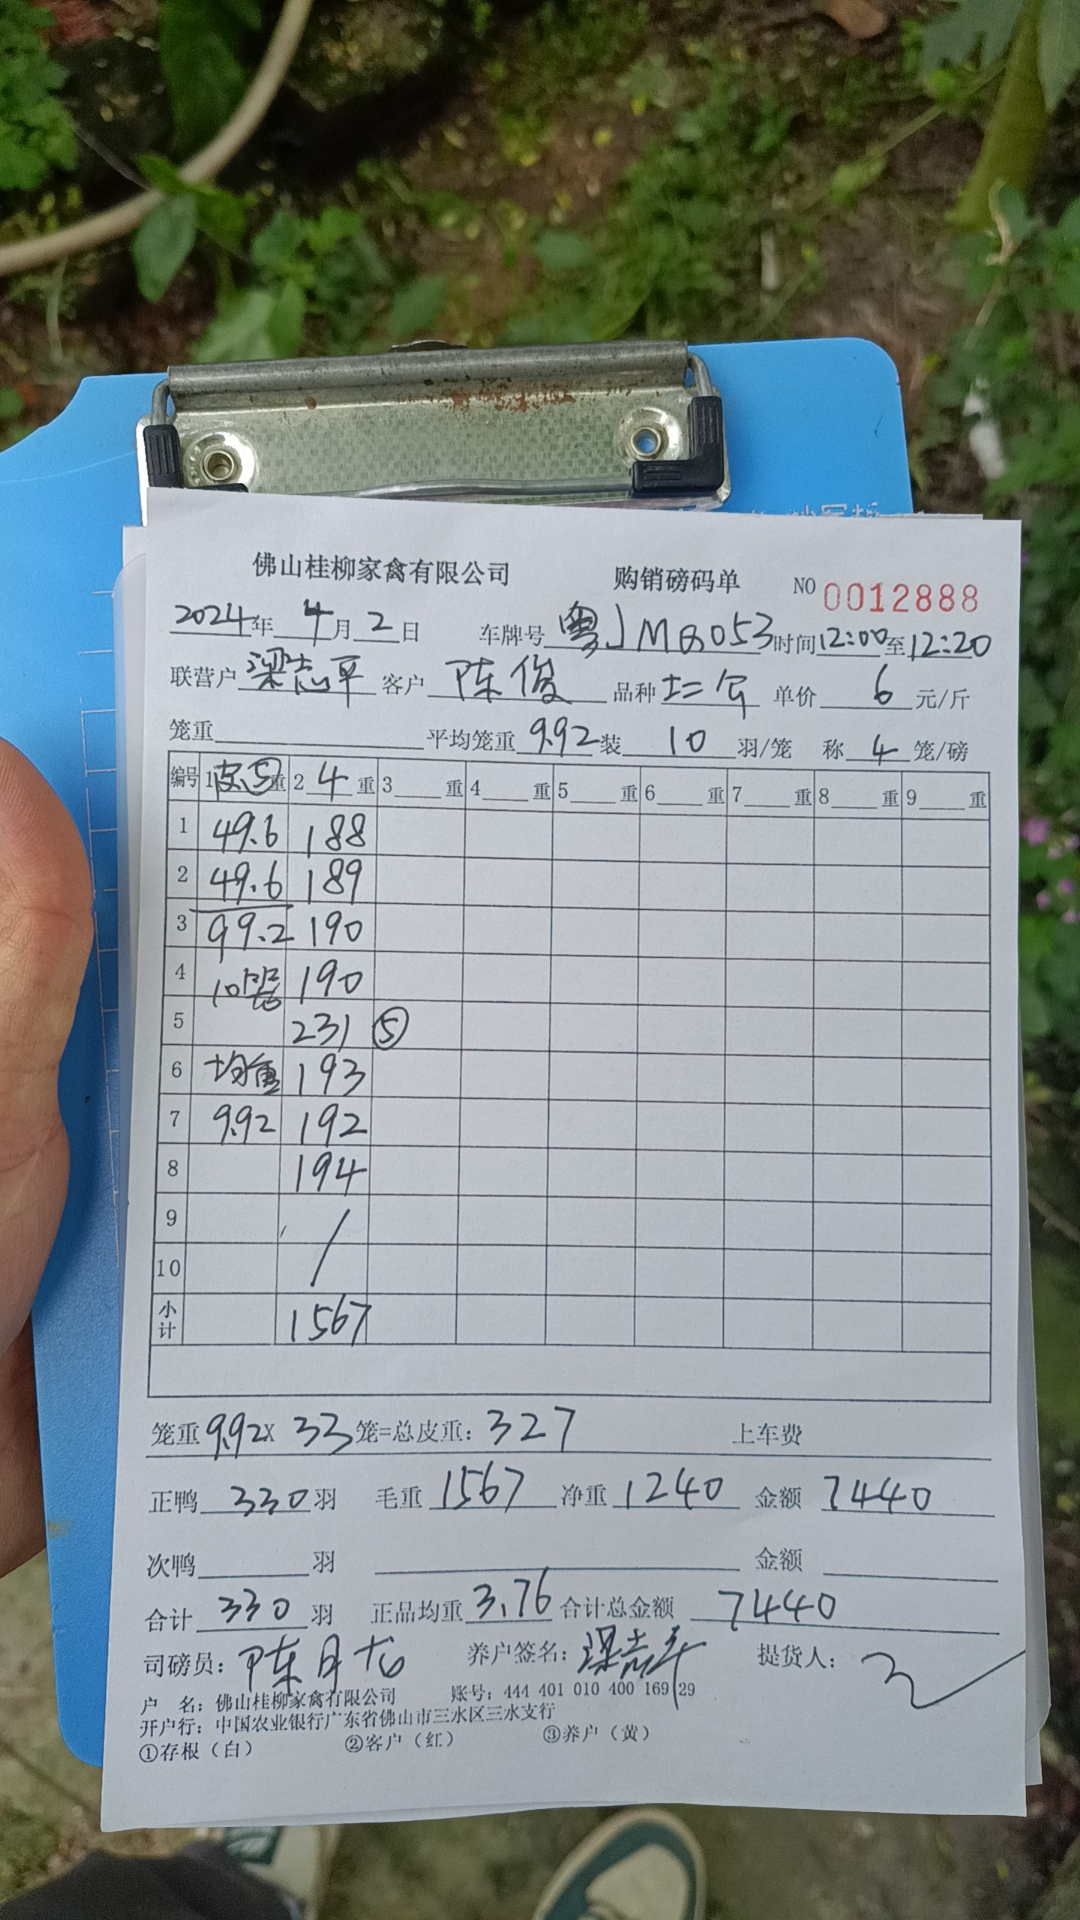 佛山桂柳家禽有限公司 购销磅码单 NO 0012888
2024年 4月 2日 车牌号 粤JMQ053 时间 12:00至12:20
联营户 梁志平 客户 陈俊 品种 土二公 单价 6 元/斤
笼重 平均笼重 9.92 装 10 羽/笼 称 4 笼/磅
编号 1 皮⑤ 重 2 4 重 3 重 4 重 5 重 6 重 7 重 8 重 9 重
1 49.6 188
2 49.6 189
3 99.2 190
4 10笼 190
5 231 ⑤
6 均重 193
7 9.92 192
8 194
9 /
10
小计 1567
笼重 9.92 X 33 笼=总皮重: 327 上车费
正鸭 330 羽 毛重 1567 净重 1240 金额 7440
次鸭 羽 金额
合计 330 羽 正品均重 3.76 合计总金额 7440
司磅员: 陈月龙 养户签名: 梁志平 提货人:
户 名: 佛山桂柳家禽有限公司 账号: 444 401 010 400 169 29
开户行: 中国农业银行广东省佛山市三水区三水支行
①存根（白） ②客户（红） ③养户（黄）